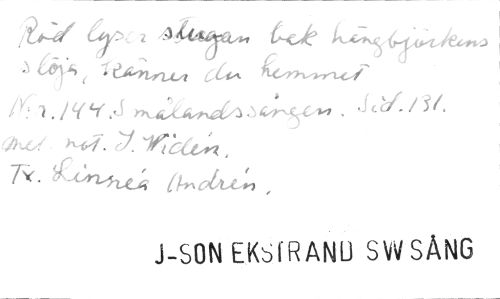 Röd lyser stugan bak hängbjörkens
slöja, Känner du hemmet
Nr. 144. Smålandssången. Sid. 131.
med not. J. Widén.
Tx. Linnéa Andrén.
J-SON EKSTRAND SW SÅNG